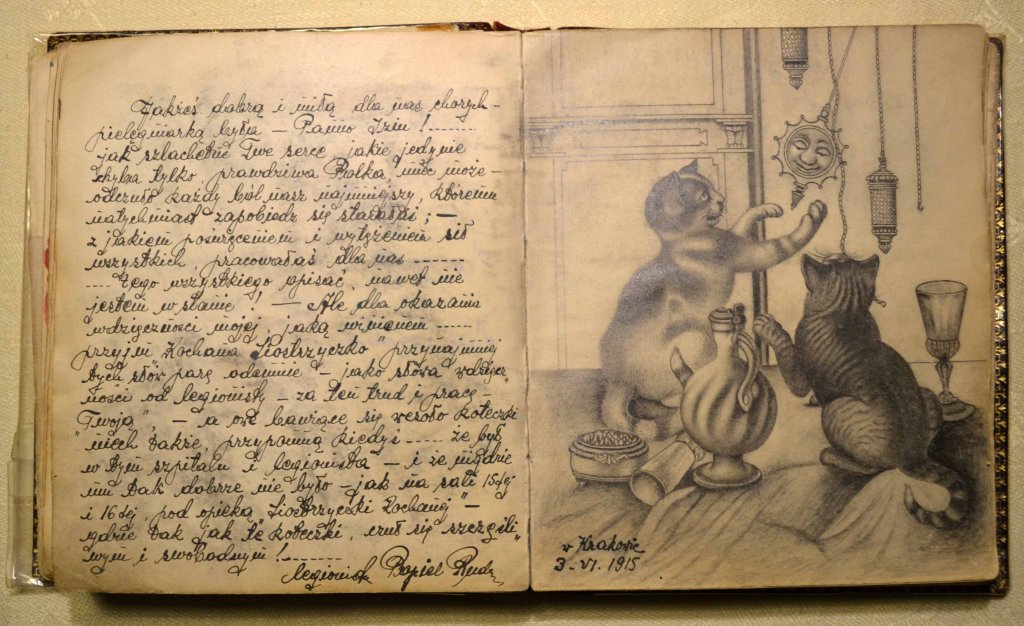 Jakżeś dobrą i miłą dla nas chorych –
pielęgniarką była – Panno Iziu! ------
jak szlachetne Twe serce, jakie jedynie
chyba tylko, prawdziwa Polka, mieć może –
odczuło każdy ból nasz najmniejszy, któremu
natychmiast zapobiedz się starałaś; –
z jakiem poświęceniem i wytężeniem sił
wszystkich, pracowałaś dla nas ------
---- Tego wszystkiego opisać, nawet nie
jestem w stanie! – Ale dla okazania
wdzięczności mojej, jaką winienem -----
przyjm "Kochana Siostrzyczko" przynajmniej
tych słów parę odemnie – jako słowa wdzięcz„
ności od legionisty – za ten trud i pracę –
Twoją" – a owe bawiące się wesoło koteczki
"niech także, przypomną kiedyś ----- że był
w tym szpitalu i legionista – i że nigdzie
mu tak dobrze nie było – jak na sali 15tej
i 16tej, pod opieką Siostrzyczki Kochanej" –
gdzie tak jak te koteczki, czuł się szczęśli„
wym i swobodnym! ------
legionista Popiel
w Krakowie
3. VI. 1915